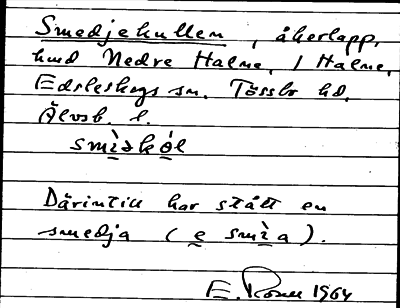 Smedjekullen, åkerlapp,
hmd Nedre Halme, / Halme,
Edsleskogs sn. Tössbo hd,
Älvsb. l.
smìəkờl
Därintill har stått en
smedja (e smìa).
E. Rosen 1964